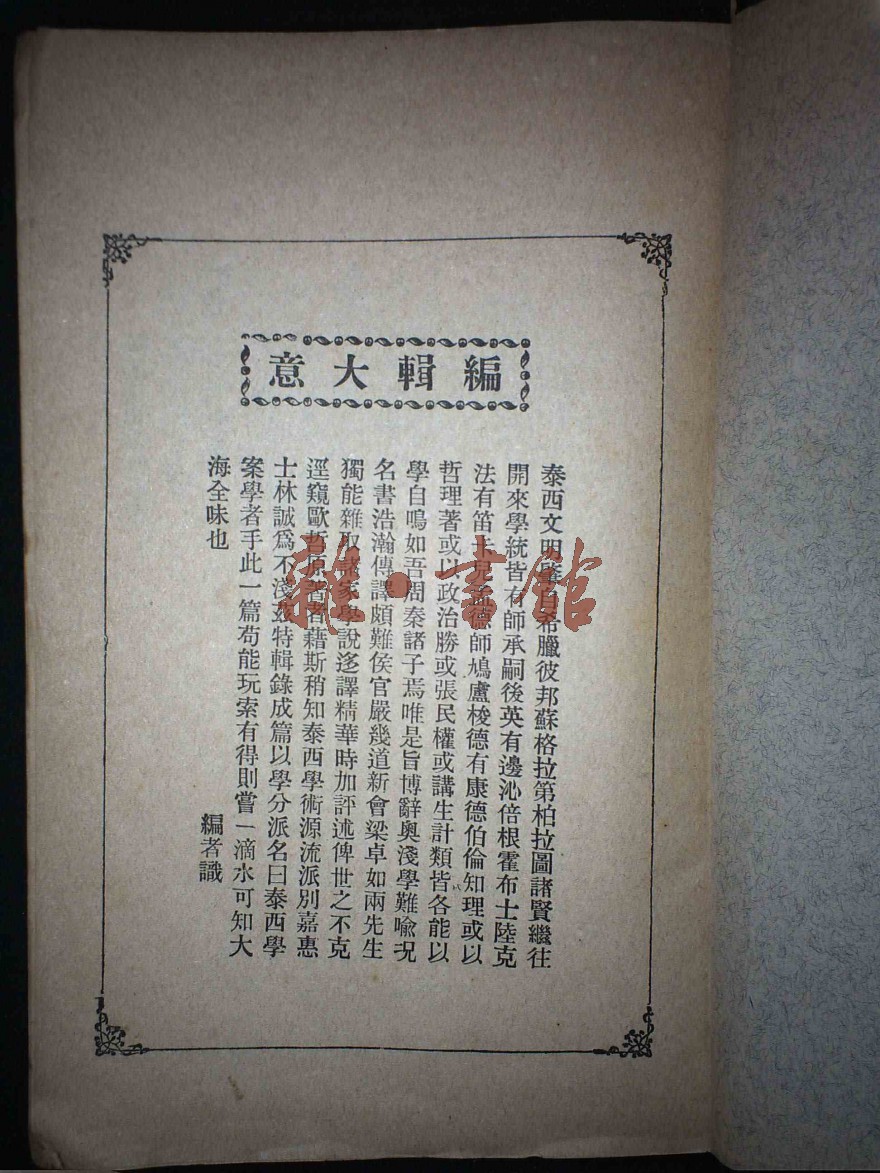 編輯大意
泰西文明肇自希臘彼邦蘇格拉第柏拉圖諸賢繼往
開來學統皆有師承嗣後英有邊沁倍根霍布士陸克
法有笛卡兒孟德師鳩盧梭德有康德伯倫知理或以
哲理著或以政治勝或張民權或講生計類皆各能以
學自鳴如吾周秦諸子焉唯是旨博辭奧淺學難喻况
名書浩瀚傳譯頗難侯官嚴幾道新會梁卓如兩先生
獨能雜取諸家學說迻譯精華時加評述俾世之不克
逕窺歐哲原著者藉斯稍知泰西學術源流派別嘉惠
士林誠爲不淺茲特輯錄成篇以學分派名曰泰西學
案學者手此一篇苟能玩索有得則嘗一滴水可知大
海全味也
編者識
雜·書館